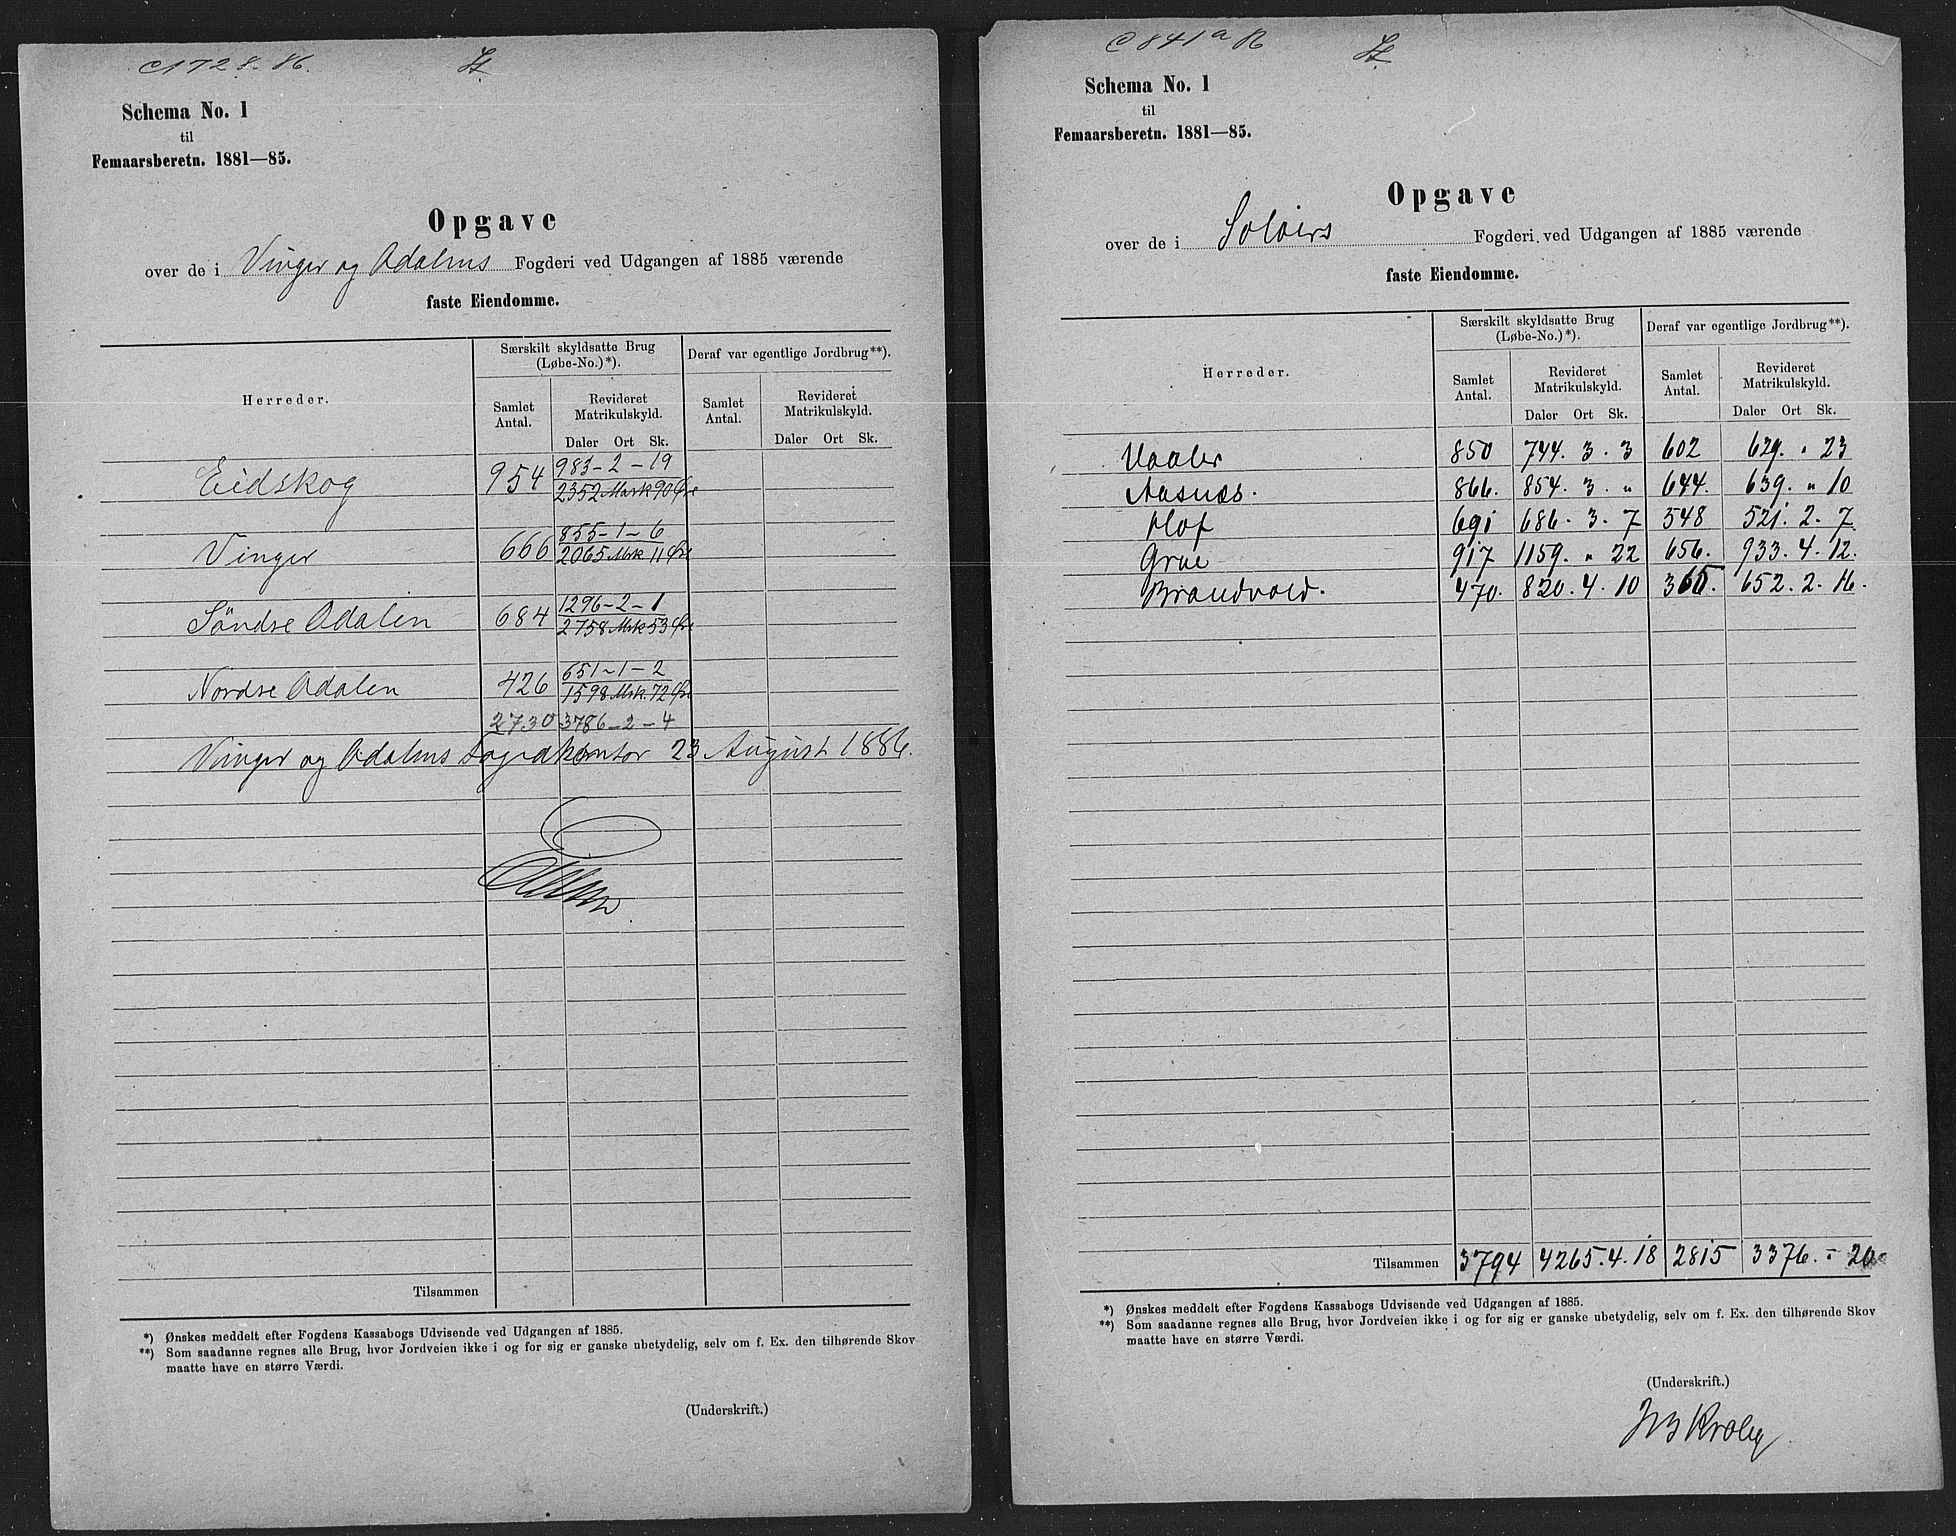 C 1728. 86.
Schema No. 1
til
Femaarsberetn. 1881—85.
Opgave
over de i Vinger og Odalens Fogderi ved Udgangen af 1885 værende
faste Eiendomme.
Herreder.
Særskilt skyldsatte Brug
(Løbe-No.)*).
Deraf var egentlige Jordbrug**).
Samlet Antal.
Revideret Matrikulskyld.
Samlet Antal.
Revideret Matrikulskyld.
Daler Ort Sk.
Daler Ort Sk.
Eidskog 954 983-2-19
2352 Mark 90 Øre
Vinger 666 855-1-6
2065 Mrk 11 Øre
Söndre Odalen 684 1296-2-1
2758 Mrk 53 Øre
Nordre Odalen 426 651-1-2
1598 Mrk. 72 Øre
2730 3786-2-4
Vinger og Odalens Fogedkontor 23 August 1886.
Tilsammen
*) Ønskes meddelt efter Fogdens Kassabogs Udvisende ved Udgangen af 1885.
**) Som saadanne regnes alle Brug, hvor Jordveien ikke i og for sig er ganske ubetydelig, selv om f. Ex. den tilhørende Skov
maatte have en større Værdi.
(Underskrift.)
C 841 a
Schema No. 1
til
Femaarsberetn. 1881—85.
Opgave
over de i Soløiers Fogderi ved Udgangen af 1885 værende
faste Eiendomme.
Herreder.
Særskilt skyldsatte Brug
(Løbe-No.)*).
Deraf var egentlige Jordbrug**).
Samlet Antal.
Revideret Matrikulskyld.
Samlet Antal.
Revideret Matrikulskyld.
Daler Ort Sk.
Daler Ort Sk.
Vaaler 850 744. 3. 3 602 629. " 23
Aasnæs. 866. 854. 3. " 644. 639. " 10
Hof 691 686. 3. 7 548 521. 2. 7
Grue 917 1159. " 22 656. 933. 4. 12.
Brandvold. 470. 820. 4. 10 365. 652. 2. 16.
Tilsammen 3794 4265. 4. 18 2815 3376. - 20
*) Ønskes meddelt efter Fogdens Kassabogs Udvisende ved Udgangen af 1885.
**) Som saadanne regnes alle Brug, hvor Jordveien ikke i og for sig er ganske ubetydelig, selv om f. Ex. den tilhørende Skov
maatte have en større Værdi.
(Underskrift.)